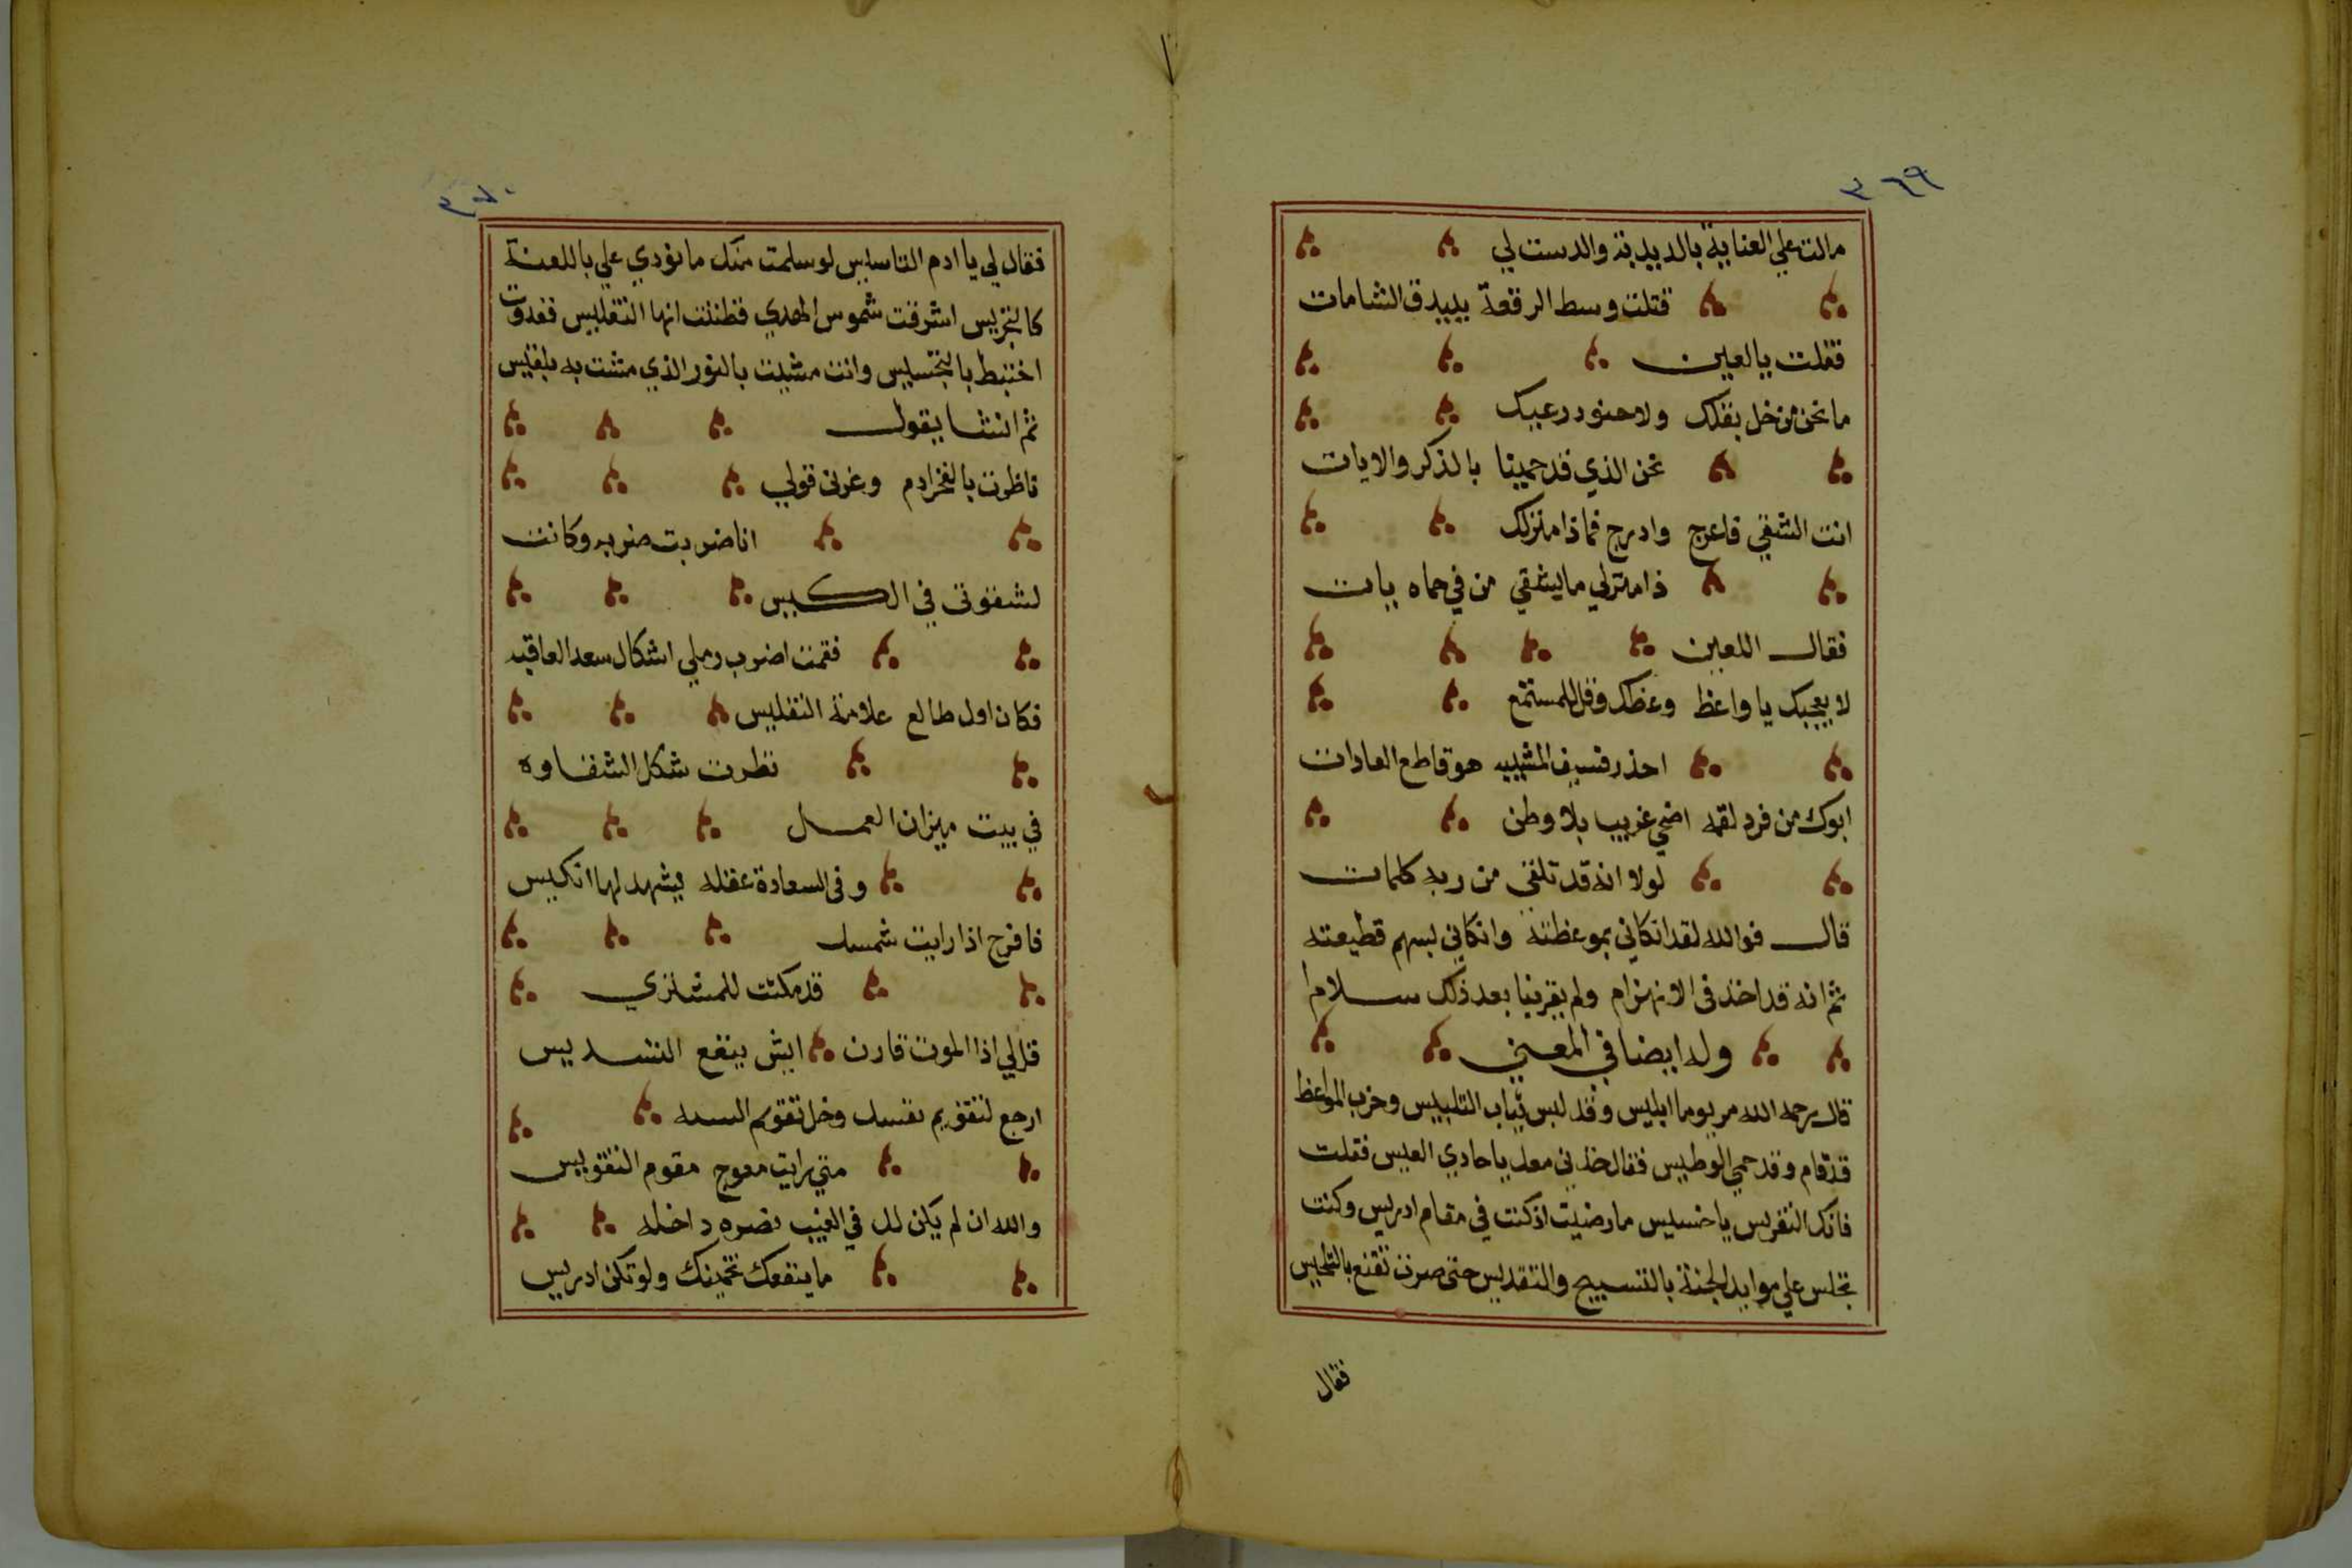 ٣٦٩
مالت علي العناية بالديدبة والدست لي
قتلت وسط الرقعة بييدق الشامات
فقلت يا لعين
ما نحن من خل بقلك ولا رعبك
نحن الذي قد حمينا بالذكر والايات
انت الشقي فاعرج وادرج فماذا منزلك
ذا منزلي ما يشقي من في حماه بات
فقال اللعين
لا يعجبك يا واعظ وعظك وقل للمستمع
احذر فسيف المشيه هو قاطع العادات
ابوك من فرد لقمه اضحي غريب بلا وطن
لولا انه قد تلقي من ربه كلمات
قال فوالله لقد انكاني بموعظته وانكاني بسهم قطيعته
ثم انه قد اخذ في الانهزام ولم يقرينا بعد ذلك سلاما
وله ايضا في المعني
قال رحمه الله مر يوما ابليس وقد لبس ثياب التلبيس وحزب المواعظ
قد قام وقد حمي الوطيس فقال خذني معك يا حادي العيس فقلت
فاتك التغريس يا خسيس ما رضيت اذ كنت في مقام ادريس وكنت
تجلس علي موايد الجنة بالتسبيح والتقديس حتى صرت تقنع بالتلحيس
فقال
٣٧٠
فقال لي يا ادم التاسيس لو سلمت منك ما نودي علي باللعنة
اشرقت شموس الهدي فظننت انها التغليس فغدوت
اختبط وانت مشيت بالنور الذي مشت به بلقيس
ثم انشا يقول
ناظرت بالفخر ادم وغرني قولي
انا ضربت ضربه وكانت
لشقوتي في الكيس
فقمت اضرب رملي اشكال سعد العاقبه
فكان اول طالع علامة التفليس
نظرت شكل الشقاوه
في بيت ميزان العمل
وفي السعادة عقله يشهد لها انكيس
فافرح اذا رايت شمسك
قد مكنت للمشتري
قل لي اذا الموت قارن ايش ينفع التسديس
ارجع لتقويم نفسك وخل تقويم السنه
متي رايت معوج مقوم التقويس
والله ان لم يكن لك في الغيب نصره داخله
ما ينفعك تخمينك ولو تكن ادريس